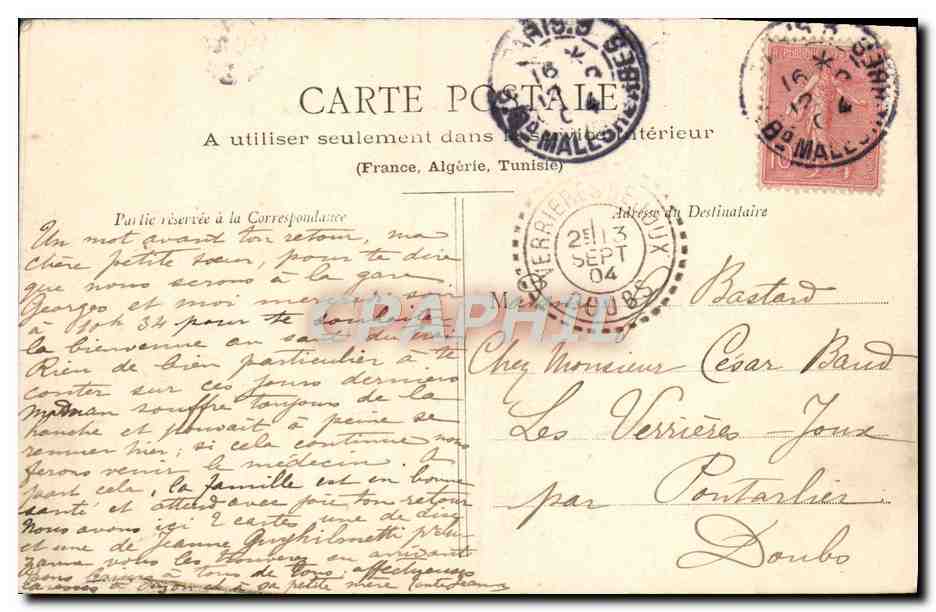 CARTE POSTALE
A utiliser seulement dans le service intérieur
(France, Algérie, Tunisie)
Partie réservée à la Correspondance
Adresse du Destinataire
PARIS
16
Bd MALESHERBES
VERRIERES DE JOUX
2E 13
SEPT
04
DOUBS
CPAPHIL
Un mot avant ton retour, ma
chère petite sœur, pour te dire
que nous serons à la gare
Georges et moi mercredi soir
à 10h 34 pour te souhaiter
la bienvenue au saut du train
Rien de bien particulier à te
conter sur ces jours derniers
maman souffre toujours de la
hanche et pouvait à peine se
remuer hier ; si cela continue nous
ferons venir le médecin. A
part cela, la famille est en bonne
santé et attend avec joie ton retour
Nous avons ici 2 cartes une de
et une de Jeanne
vous les trouverez en arrivant
à tous de tous : affectueuses
caresses à et à sa petite mère
M
Bastard
Chez Monsieur César Baud
Les Verrières - Joux
par Pontarlier
Doubs